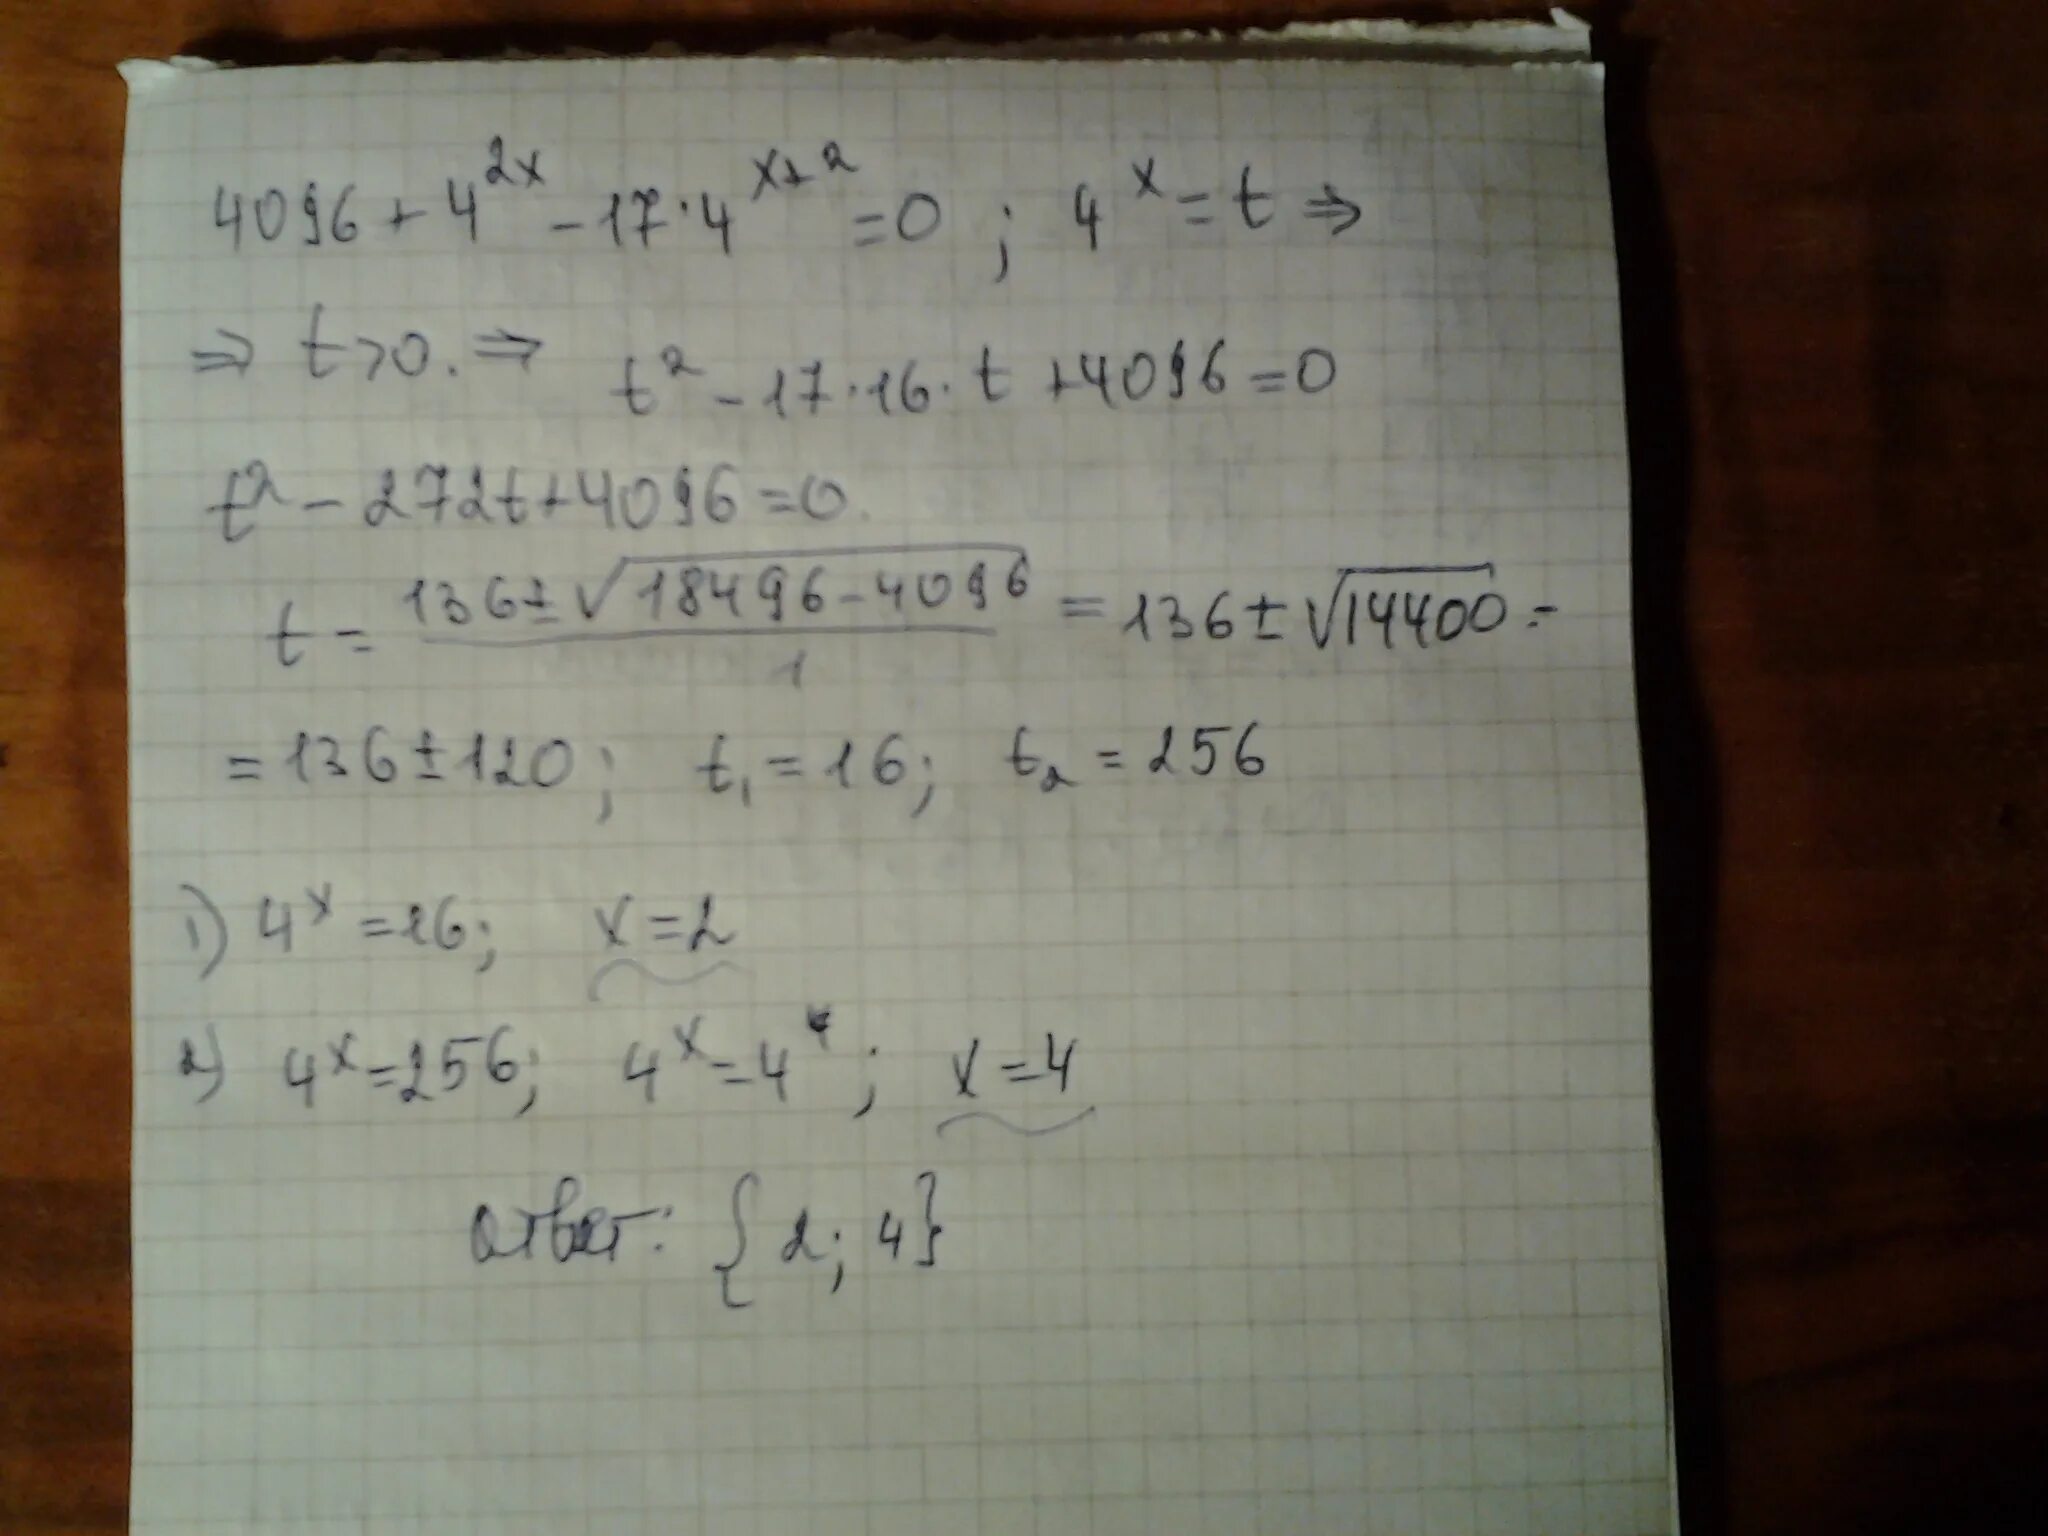 4096 + 4^{2x} − 17·4^{x+2} = 0 ; 4^x = t ⇒
⇒ t > 0. ⇒ t² − 17·16·t + 4096 = 0
t² − 272t + 4096 = 0.
t = \frac{136 ± √(18496 − 4096)}{1} = 136 ± √14400 =
= 136 ± 120; t₁ = 16; t₂ = 256
1) 4^x = 16; x = 2
2) 4^x = 256; 4^x = 4^4; x = 4
Ответ: {2; 4}